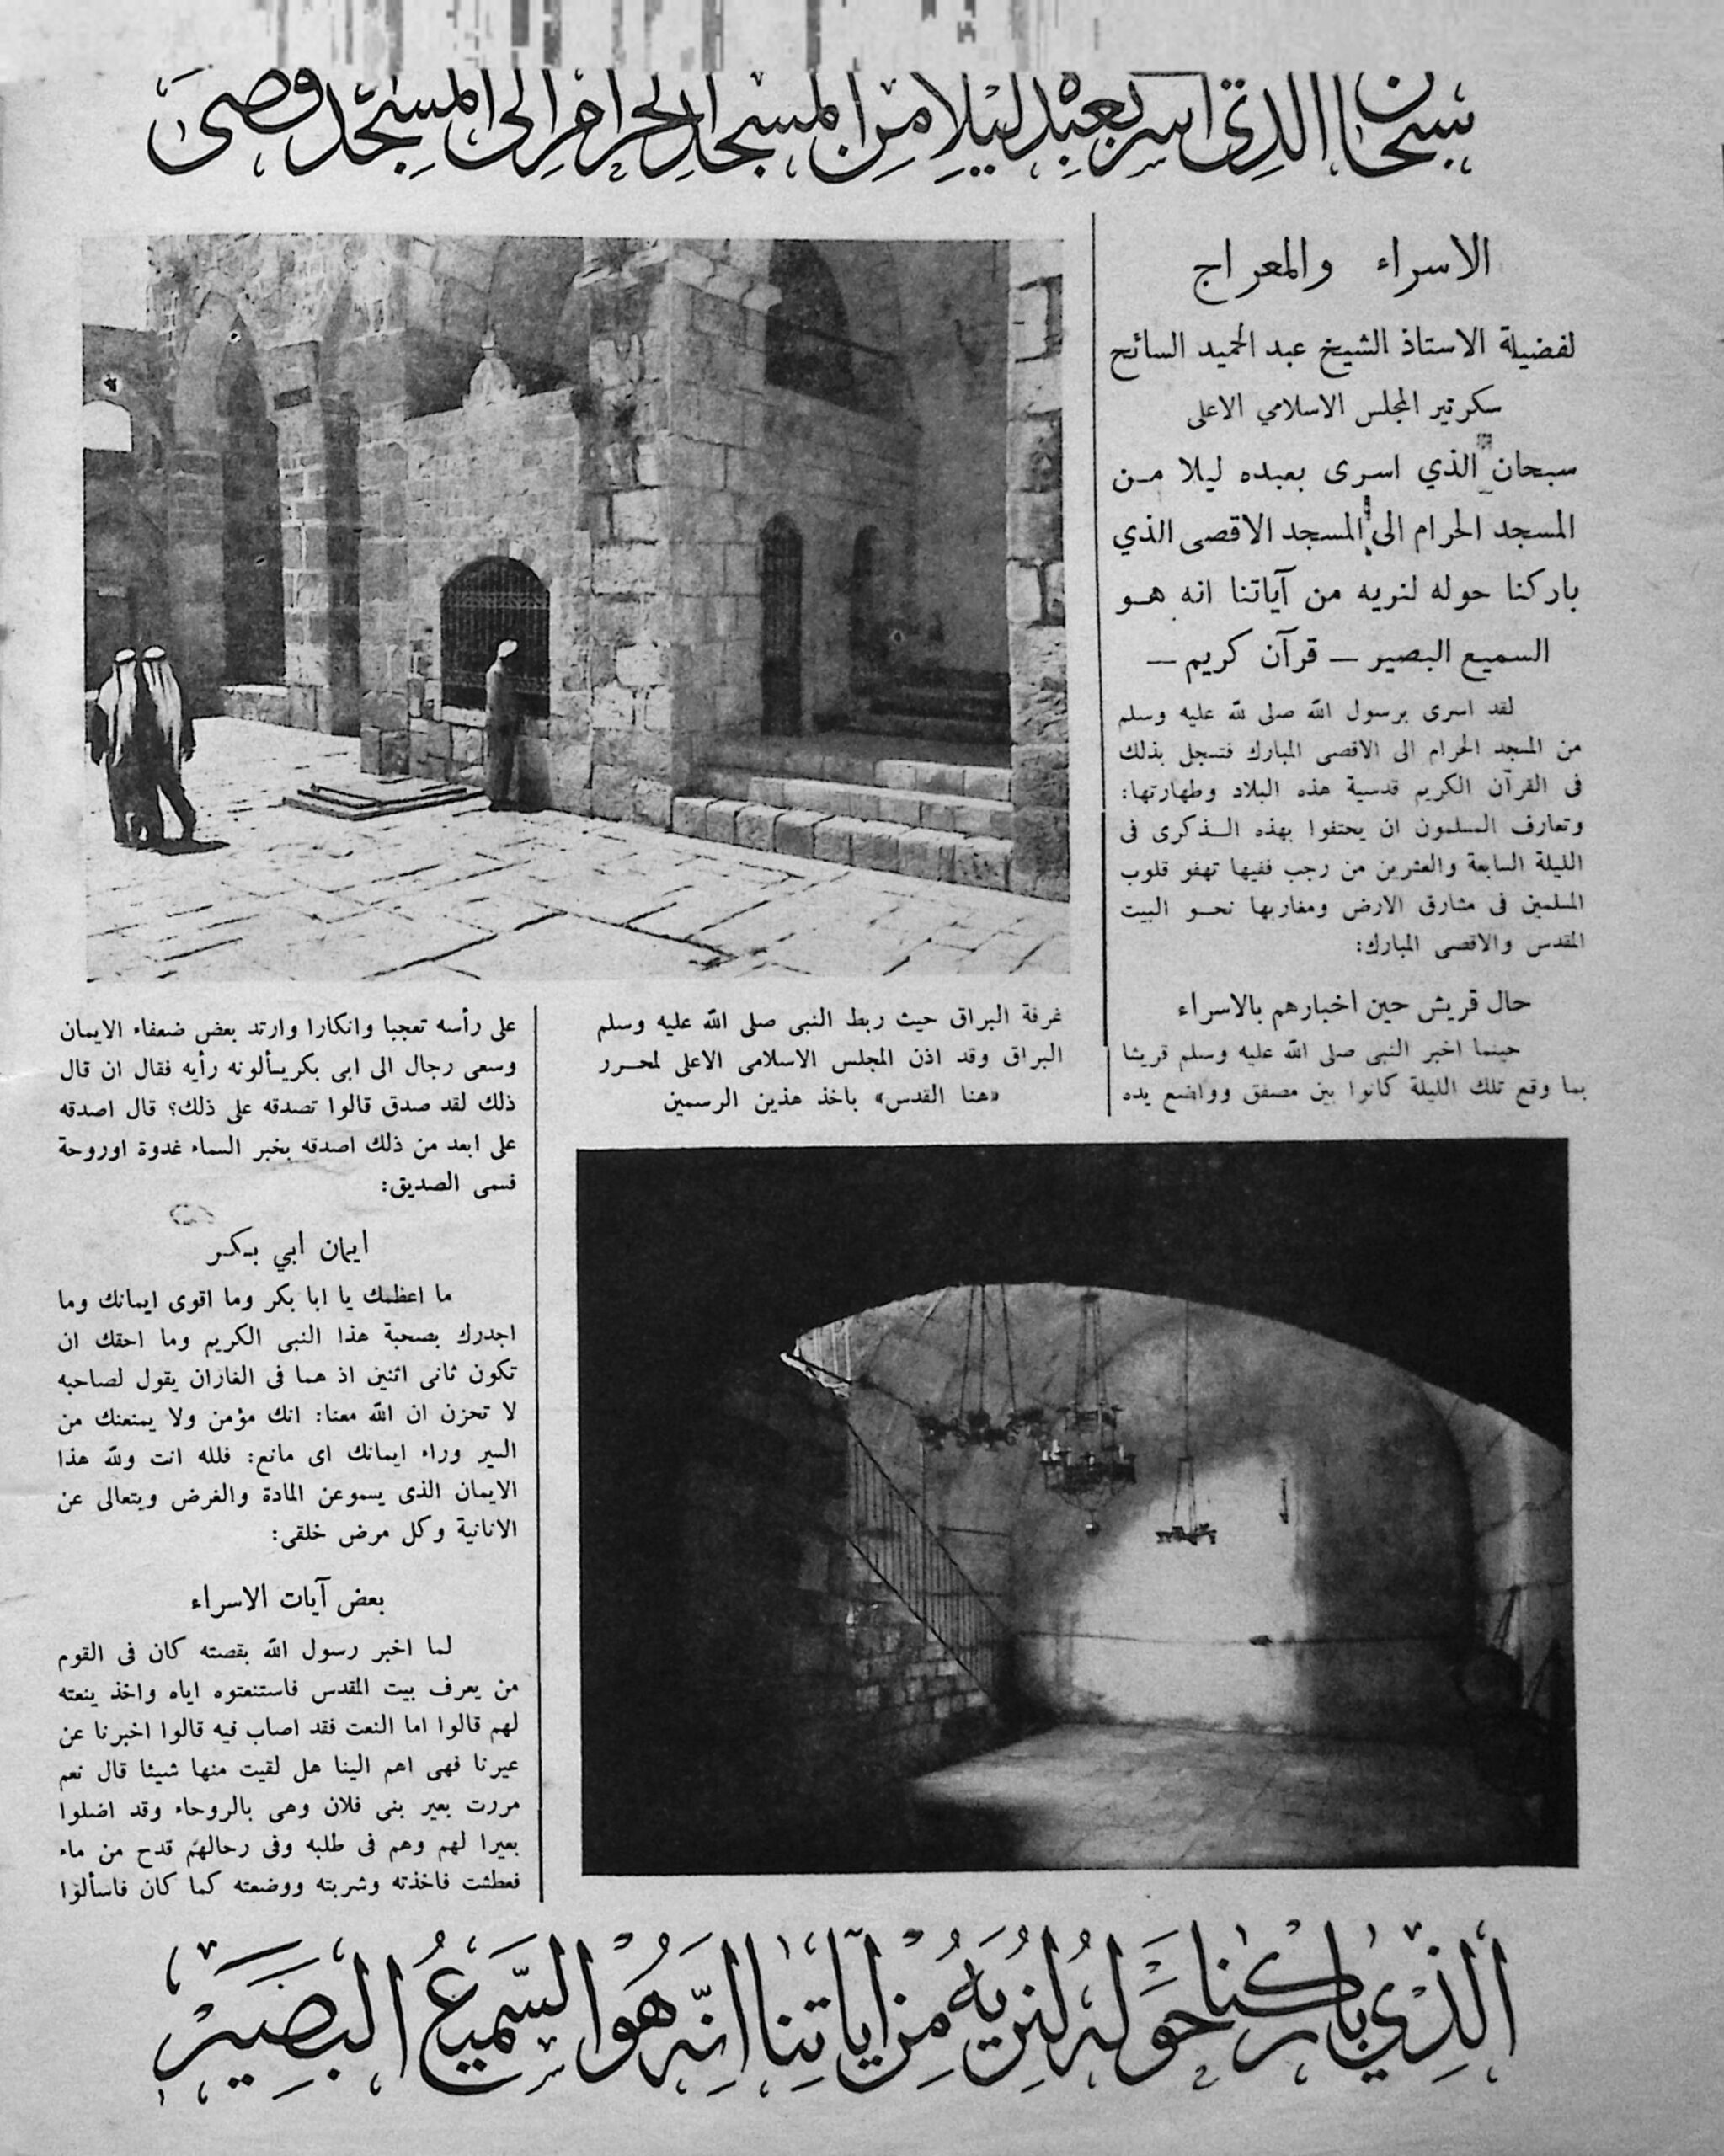 سبحان الذي اسرى بعبده ليلا من المسجد الحرام الى المسجد
الاسراء والمعراج
لفضيلة الاستاذ الشيخ عبد الحميد السائح
سكرتير المجلس الاسلامي الاعلى
سبحان الذي اسرى بعبده ليلا من
المسجد الحرام الى المسجد الاقصى الذي
باركنا حوله لنريه من آياتنا انه هو
السميع البصير — قرآن كريم —
لقد اسرى برسول الله صلى لله عليه وسلم
من المسجد الحرام الى الاقصى المبارك فتسجل بذلك
فى القرآن الكريم قدسية هذه البلاد وطهارتها:
وتعارف المسلمون ان يحتفوا بهذه الذكرى فى
الليلة السابعة والعشرين من رجب ففيها تهفو قلوب
المسلمين فى مشارق الارض ومغاربها نحو البيت
المقدس والاقصى المبارك:
حال قريش حين اخبارهم بالاسراء
حينما اخبر النبى صلى الله عليه وسلم قريشا
بما وقع تلك الليلة كانوا بين مصفق وواضع يده
غرفة البراق حيث ربط النبى صلى الله عليه وسلم
البراق وقد اذن المجلس الاسلامى الاعلى لمحرر
«هنا القدس» باخذ هذين الرسمين
على رأسه تعجبا وانكارا وارتد بعض ضعفاء الايمان
وسعى رجال الى ابى بكر يسألونه رأيه فقال ان قال
ذلك لقد صدق قالوا تصدقه على ذلك؟ قال اصدقه
على ابعد من ذلك اصدقه بخبر السماء غدوة اوروحة
فسمى الصديق:
ايمان ابي بكر
ما اعظمك يا ابا بكر وما اقوى ايمانك وما
اجدرك بصحبة هذا النبى الكريم وما احقك ان
تكون ثانى اثنين اذ هما فى الغاران يقول لصاحبه
لا تحزن ان الله معنا: انك مؤمن ولا يمنعنك من
السير وراء ايمانك اى مانع: فلله انت ولله هذا
الايمان الذى يسموعن المادة والغرض ويتعالى عن
الانانية وكل مرض خلقى:
بعض آيات الاسراء
لما اخبر رسول الله بقصته كان فى القوم
من يعرف بيت المقدس فاستنعتوه اياه واخذ ينعته
لهم قالوا اما النعت فقد اصاب فيه قالوا اخبرنا عن
عيرنا فهى اهم الينا هل لقيت منها شيئا قال نعم
مررت بعير بنى فلان وهى بالروحاء وقد اضلوا
بعيرا لهم وهم فى طلبه وفى رحالهم قدح من ماء
فعطشت فاخذته وشربته ووضعته كما كان فاسألوا
الَّذِي بَارَكْنَا حَوْلَهُ لِنُرِيَهُ مِنْ آيَاتِنَا اِنَّهُ هُوَ السَّمِيعُ الْبَصِيرُ